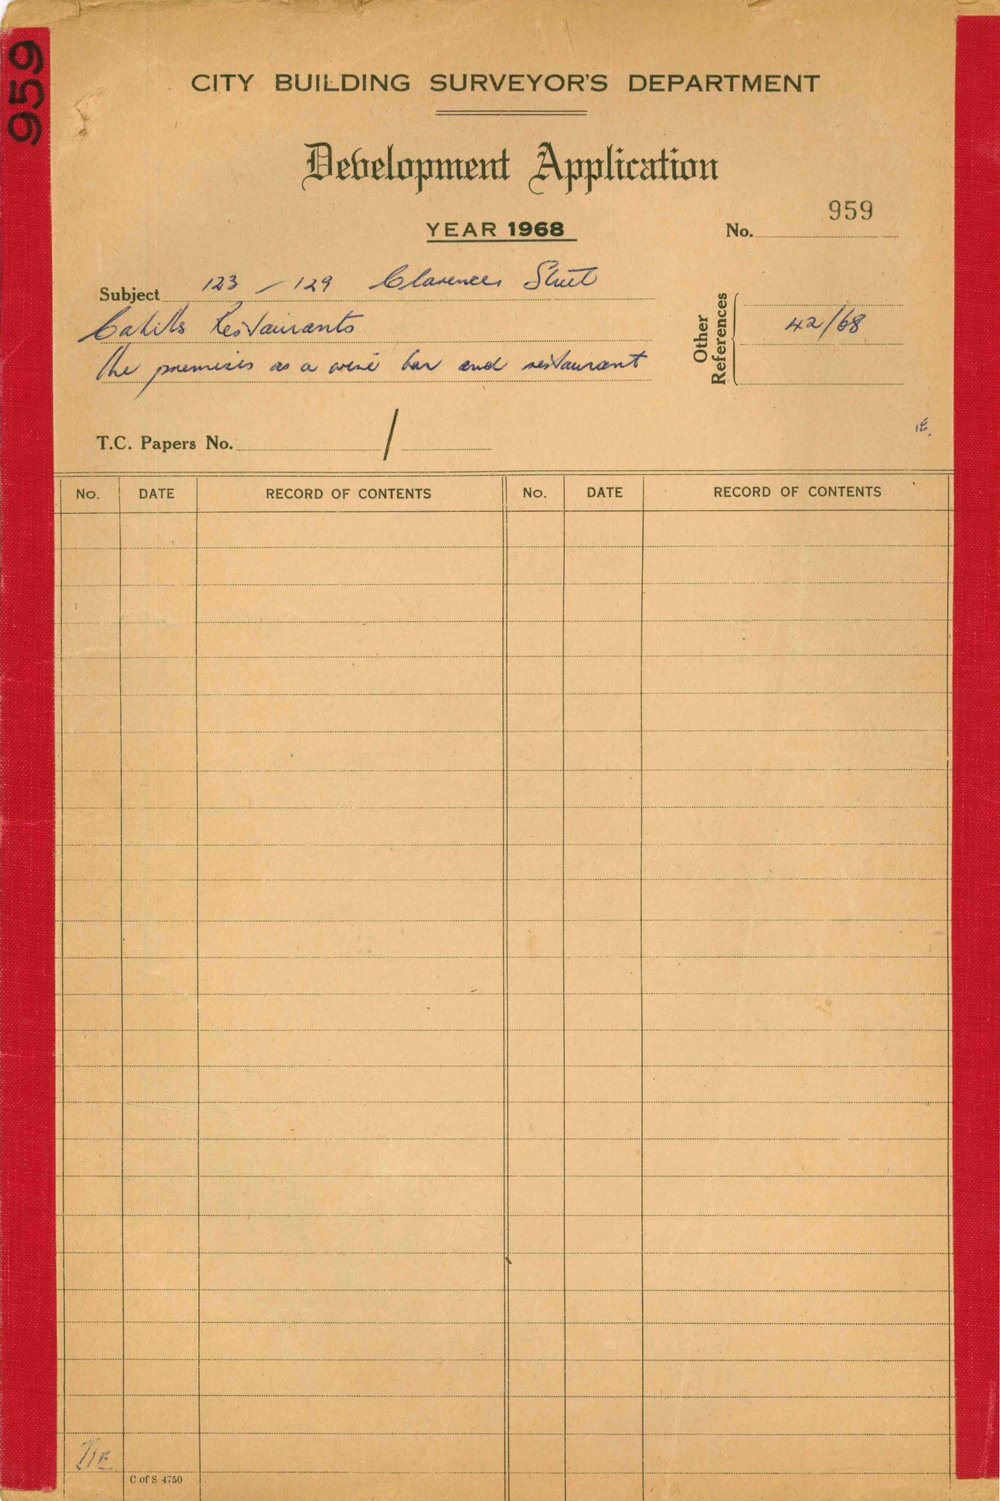 959
CITY BUILDING SURVEYOR'S DEPARTMENT
Development Application
YEAR 1968
No. 959
Subject 123 - 129 Clarence Street
Cahills Restaurants
the premises as a wine bar and restaurant
Other References
42/68
T.C. Papers No. /
IE.
No. DATE RECORD OF CONTENTS No. DATE RECORD OF CONTENTS
C of S 4750